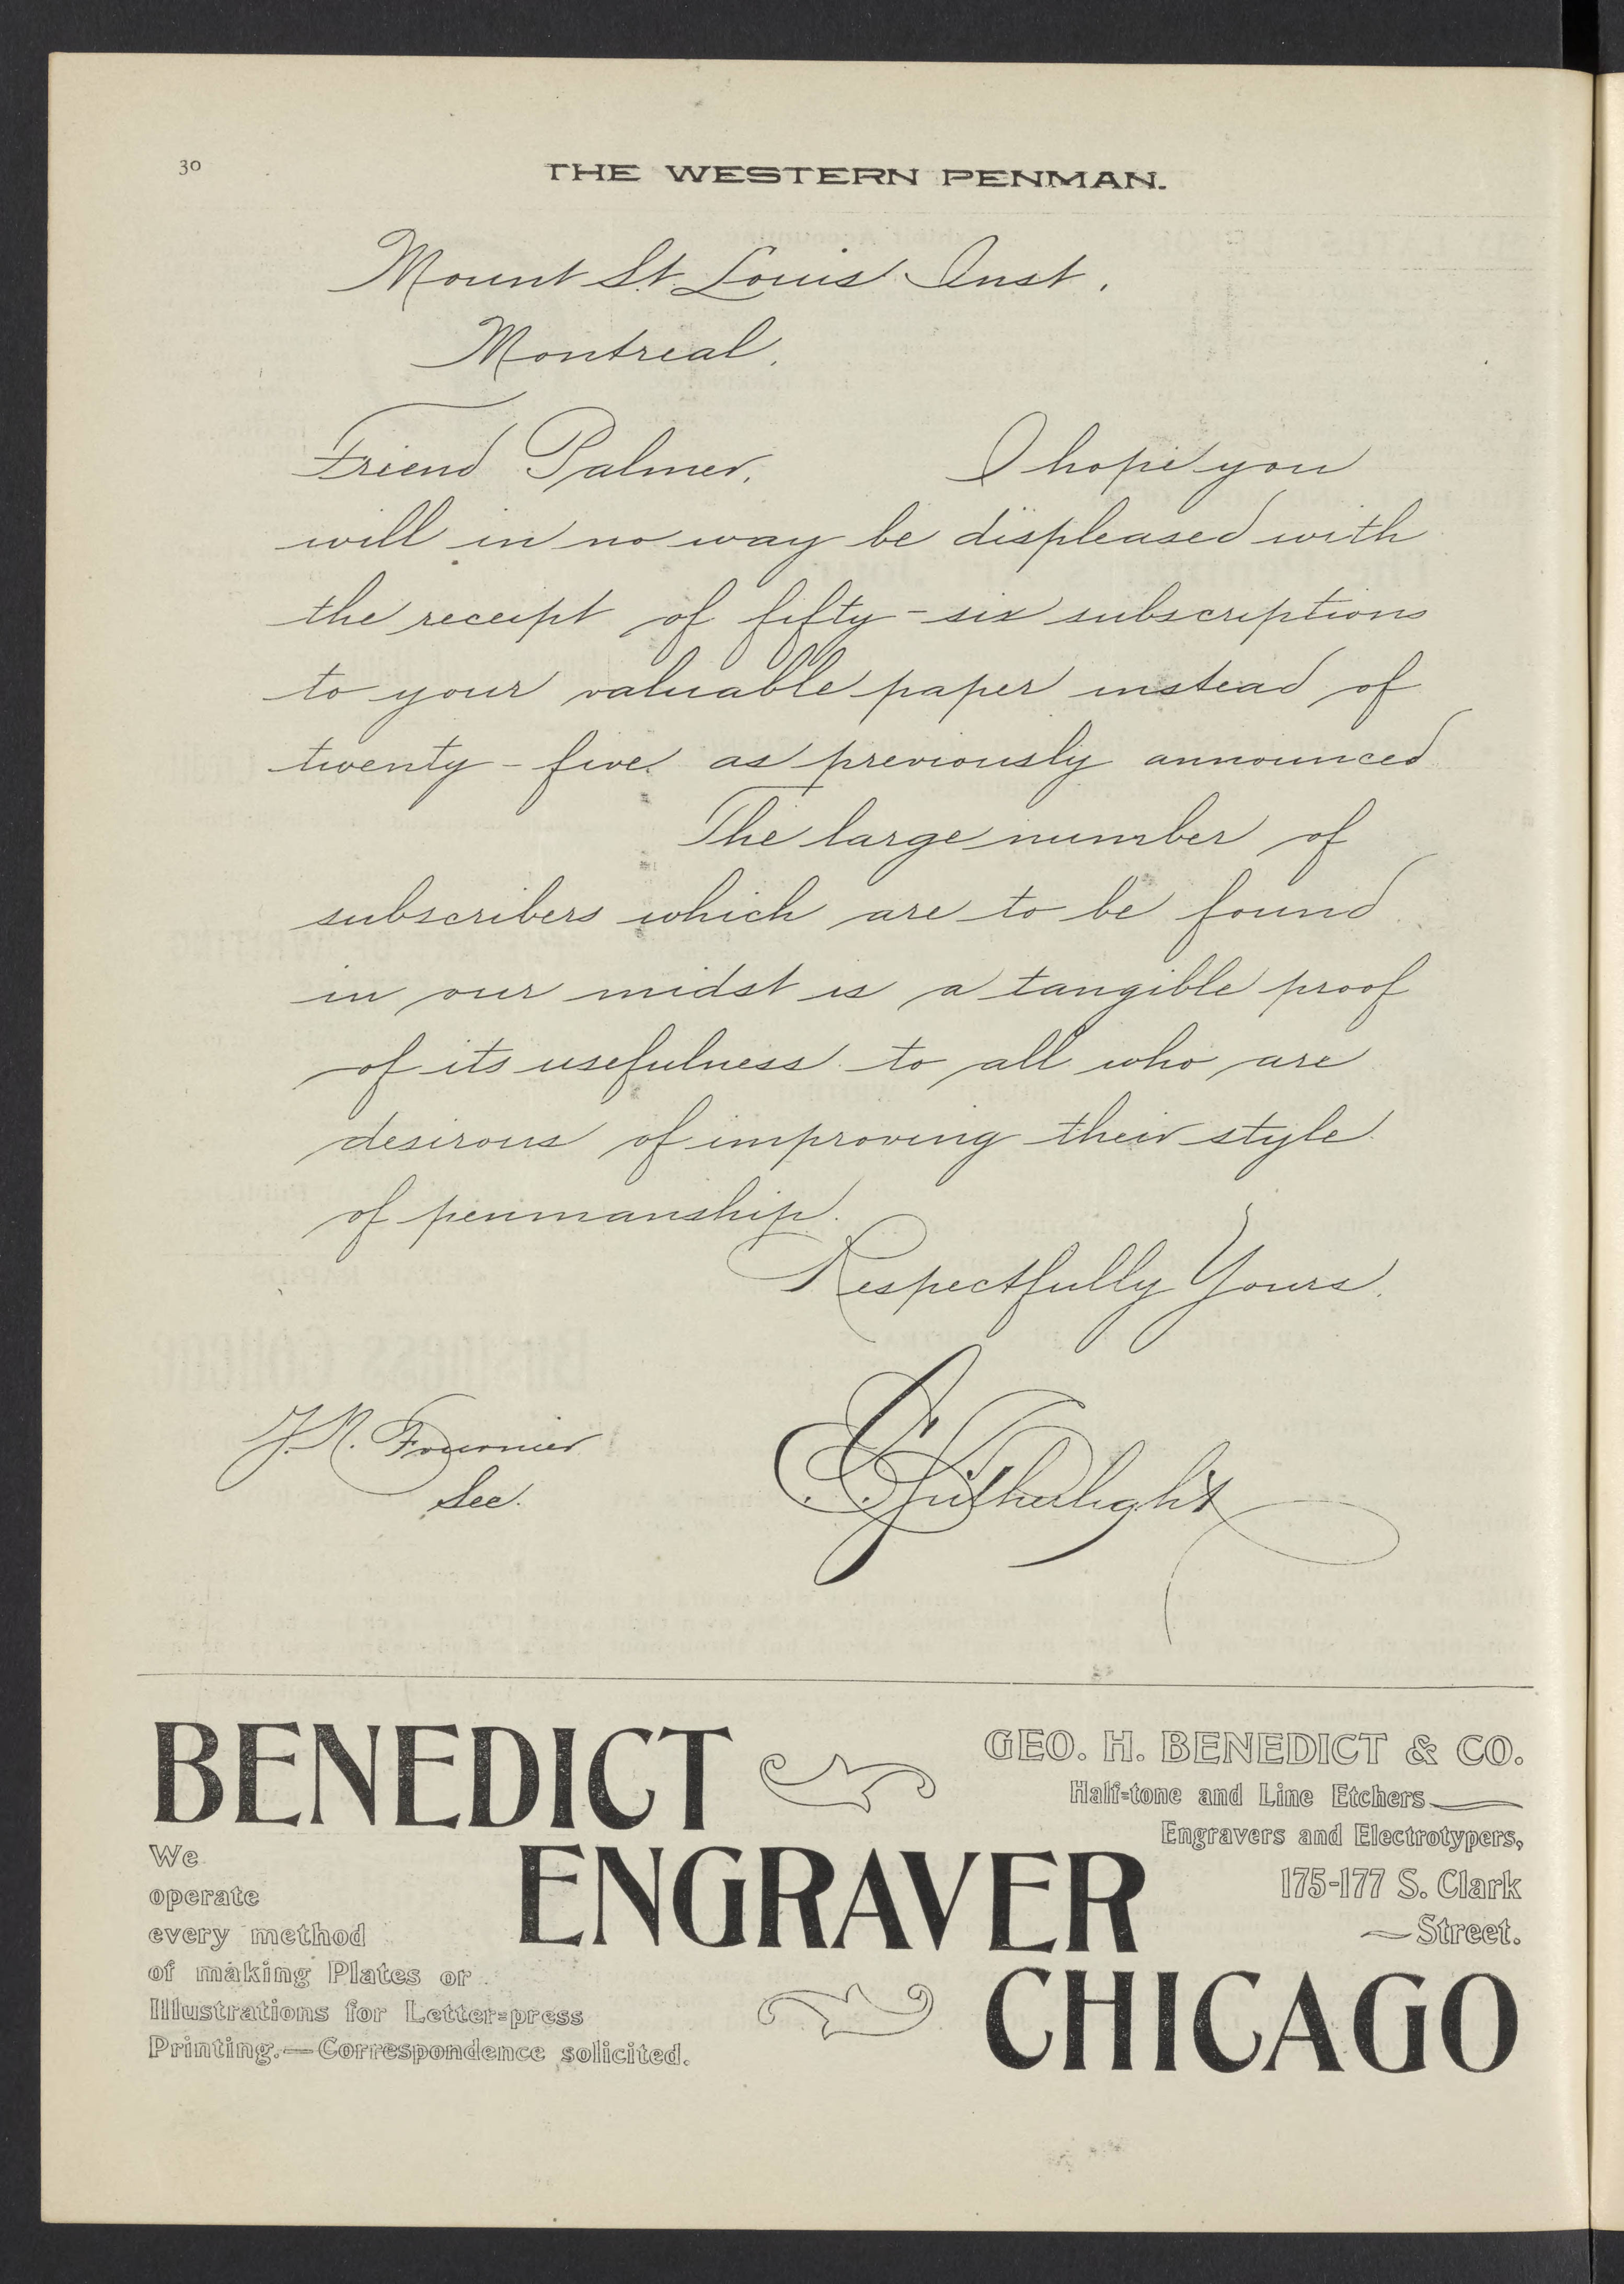 30
THE WESTERN PENMAN.
Mount St. Louis Inst.
Montreal.
Friend Palmer, I hope you
will in no way be displeased with
the receipt of fifty-six subscriptions
to your valuable paper instead of
twenty-five as previously announced
The large number of
subscribers which are to be found
in our midst is a tangible proof
of its usefulness to all who are
desirous of improving their style
of penmanship.
Respectfully Yours.
Fournier
Sec.
BENEDICT
GEO. H. BENEDICT & CO.
Half-tone and Line Etchers
Engravers and Electrotypers,
175-177 S. Clark
Street.
We
operate
every method
of making Plates or
Illustrations for Letter-press
Printing.—Correspondence solicited.
ENGRAVER
CHICAGO